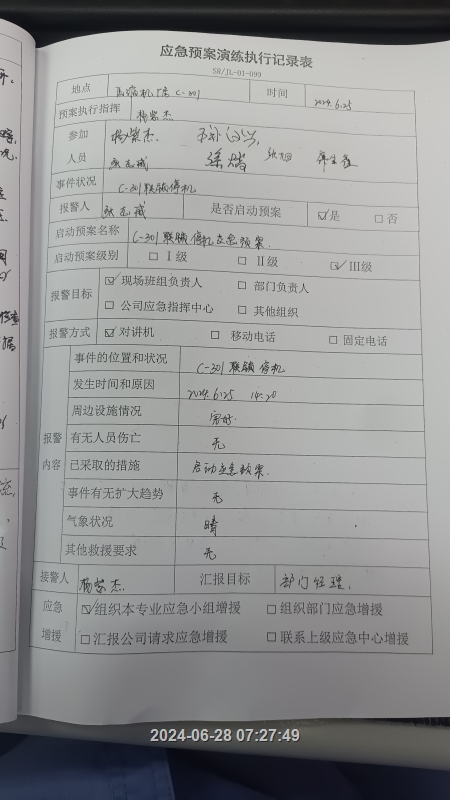 应急预案演练执行记录表
SH/JL-01-099
地点 压缩机厂房 C-301 时间 2024.6.25
预案执行指挥 杨紫杰
参加 杨紫杰.
人员 张志成 徐皓
事件状况 C-301联锁停机
报警人 张志成 是否启动预案 ☑是 □否
启动预案名称 C-301联锁停机应急预案.
启动预案级别 □Ⅰ级 □Ⅱ级 ☑Ⅲ级
报警目标 ☑现场班组负责人 □部门负责人
□公司应急指挥中心 □其他组织
报警方式 ☑对讲机 □移动电话 □固定电话
事件的位置和状况 C-301联锁停机
发生时间和原因 2024.6.25 14:20
周边设施情况 完好.
报警 有无人员伤亡 无
内容 已采取的措施 启动应急预案.
事件有无扩大趋势 无
气象状况 晴
其他救援要求 无
接警人 杨紫杰. 汇报目标 部门经理.
应急 ☑组织本专业应急小组增援 □组织部门应急增援
增援 □汇报公司请求应急增援 □联系上级应急中心增援
2024-06-28 07:27:49